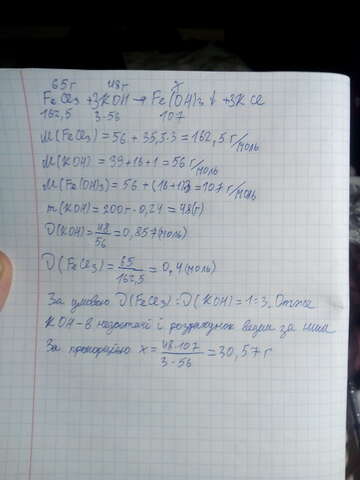 65г 48г x
FeCl₃ + 3KOH → Fe(OH)₃ ↓ + 3KCl
162,5 3·56 107
M(FeCl₃) = 56 + 35,5·3 = 162,5 г/моль
M(KOH) = 39+16+1 = 56 г/моль
M(Fe(OH)₃) = 56 + (16+1)3 = 107 г/моль
m(KOH) = 200г · 0,24 = 48(г)
ν(KOH) = 48/56 = 0,857(моль)
ν(FeCl₃) = 65/162,5 = 0,4(моль)
За умовою ν(FeCl₃) : ν(KOH) = 1:3. Отже
KOH – в недостачі і розрахунок ведем за ним
За пропорцією x = 48·107/3·56 = 30,57 г